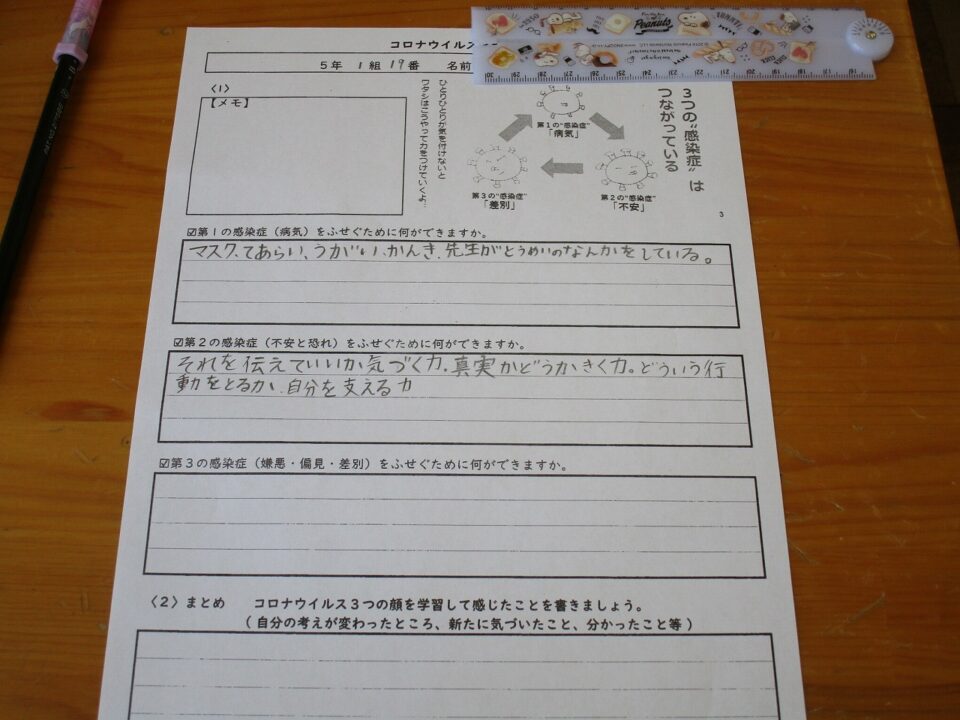 コロナウイルス
5年 1組 19番 名前
〈1〉
【メモ】
ひとりひとりが気を付けないと
ワタシはこうやって力をつけていくよ…
3つの“感染症”は
つながっている
第1の“感染症”
「病気」
第2の“感染症”
「不安」
第3の“感染症”
「差別」
3
☑第1の感染症（病気）をふせぐために何ができますか。
マスク、てあらい、うがい、かんき、先生がとうめいのなんかをしている。
☑第2の感染症（不安と恐れ）をふせぐために何ができますか。
それを伝えていいか気づく力、真実かどうかきく力。どういう行
動をとるか、自分を支える力
☑第3の感染症（嫌悪・偏見・差別）をふせぐために何ができますか。
〈2〉まとめ　コロナウイルス3つの顔を学習して感じたことを書きましょう。
（自分の考えが変わったところ、新たに気づいたこと、分かったこと等）
Peanuts